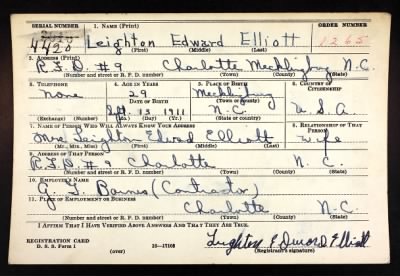 SERIAL NUMBER 1. NAME (Print) ORDER NUMBER
4420 Leighton Edward Elliott 1265
(First) (Middle) (Last)
2. ADDRESS (Print)
R.F.D. #9 Charlotte Mecklenburg N.C.
(Number and street or R. F. D. number) (Town) (County) (State)
3. TELEPHONE 4. AGE IN YEARS 5. PLACE OF BIRTH 6. COUNTRY OF CITIZENSHIP
None 29 Mecklenburg
DATE OF BIRTH (Town or county)
Sept. 13 1911 N.C. U.S.A.
(Exchange) (Number) (Mo.) (Day) (Yr.) (State or country)
7. NAME OF PERSON WHO WILL ALWAYS KNOW YOUR ADDRESS 8. RELATIONSHIP OF THAT PERSON
Mrs. Leighton Edward Elliott wife
(Mr., Mrs., Miss) (First) (Middle) (Last)
9. ADDRESS OF THAT PERSON
R.F.D. #9 Charlotte N.C.
(Number and street or R. F. D. number) (Town) (County) (State)
10. EMPLOYER'S NAME
(Contractor)
11. PLACE OF EMPLOYMENT OR BUSINESS
Charlotte N.C.
(Number and street or R. F. D. number) (Town) (County) (State)
I AFFIRM THAT I HAVE VERIFIED ABOVE ANSWERS AND THAT THEY ARE TRUE.
REGISTRATION CARD
D. S. S. Form 1 (over) 16-17105 Leighton Edward Elliott